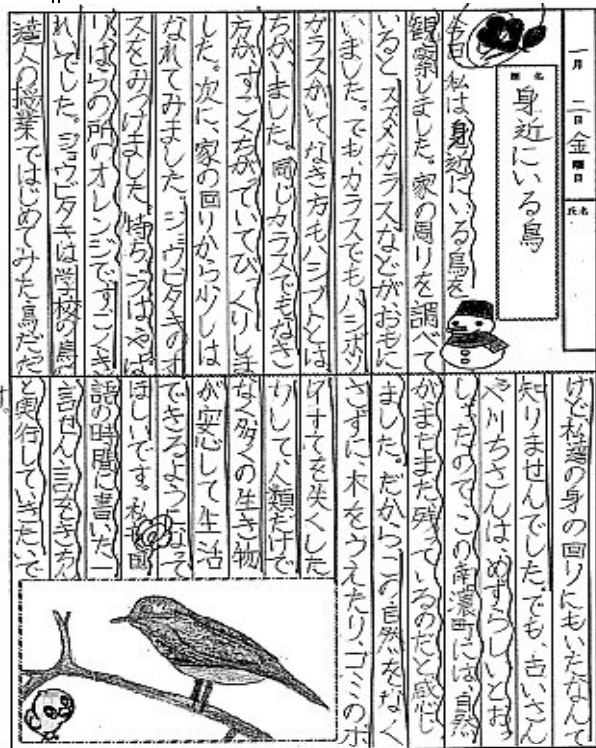 一月 二日 金曜日
氏名
題名
身近にいる鳥
今日 私は身近にいる鳥を
観察しました。家の周りを調べて
いるとスズメカラスなどが、おもに
いました。でもカラスでもハシボソ
カラスがいて、なき方もハシブトとは
ちがいました。同じカラスでもなき
方が、すごくちがていてびっくりしま
した。次に、家の回りから少しは
なれてみました。ジョウビタキのオ
スをみつけました。特ちょうはやは
りはらの所のオレンジですごくき
れいでした。ジョウビタキは学校の鳥の
達人の授業ではじめてみた鳥だだ
けで私達の身の回りにもいたなんて
知りませんでした。でも、古いさん
や川ちさんは、めずらしいとおっ
しゃたので、この南濃町には、自然
がまだまだ残っているのだと感心し
ました。だからこの自然をなく
さずに、木をうえたり、ゴミのポ
イすてを失くした
りして、人類だけで
なく多くの生き物
が安心して生活
できるようになって
ほしいです。私が国
語の時間に書いた一
言せん言をきちん
と実行していきたいで
す。